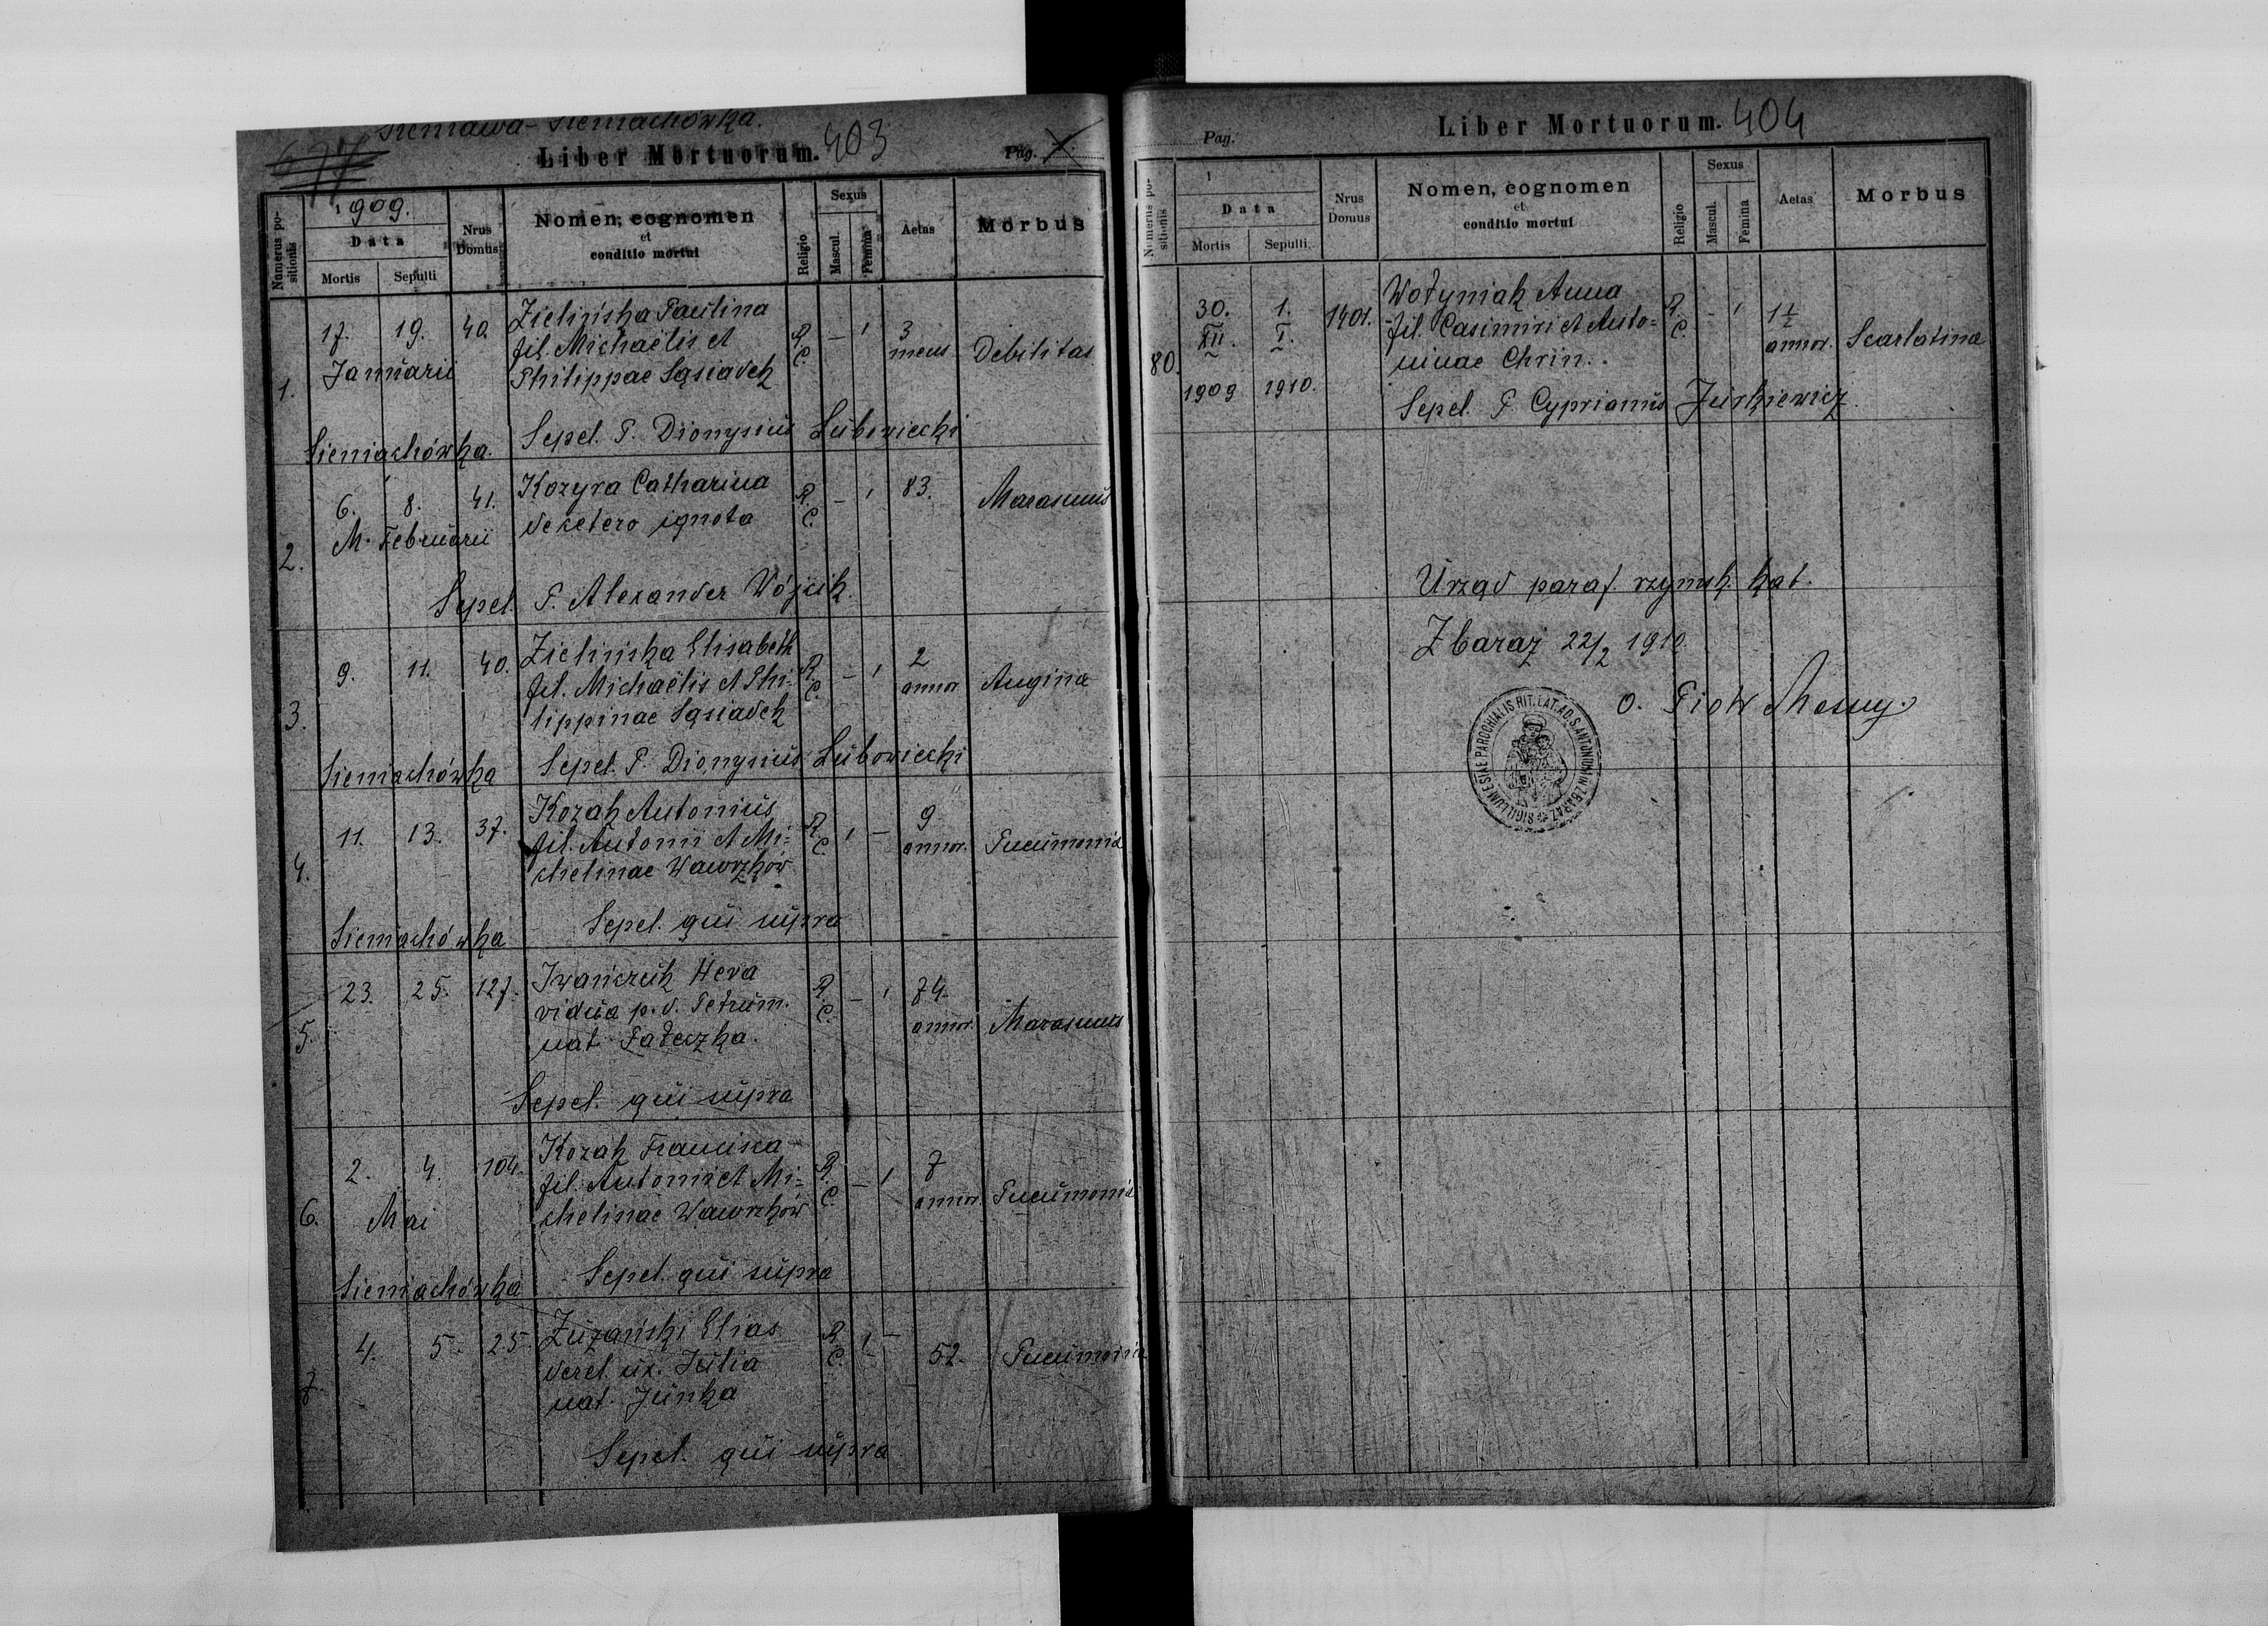 Sieniawa - Sieniachówka.
677
Liber Mortuorum. 403
Pag. 1.
Numerus positionis
1909.
Data
Mortis
Sepulti
Nrus Domus
Nomen, cognomen
et
conditio mortui
Religio
Sexus
Mascul.
Femina
Aetas
Morbus
1.
17. 19. 40. Zielińska Paulina R. C. – 1 3 mens Debilitas
Januarii fil. Michaëlis et
Philippae Sąsiadek
Sieniachówka. Sepel. P. Dionysius Lubowiecki
2.
6. 8. 41. Kozyra Catharina R. C. – 1 83. Marasmus
M. Februarii de cetero ignota
Sepel. P. Alexander Wójcik.
3.
9. 11. 40. Zielińska Elisabeth R. C. – 1 2 annor. Angina
fil. Michaëlis et Phi-
lippinae Sąsiadek
Sieniachówka Sepel. P. Dionysius Lubowiecki
4.
11. 13. 37. Kozak Antonius R. C. 1 – 9 annor. Pneumonia
fil. Antonii et Mi-
chelinae Wawrzków
Sieniachówka Sepel. qui supra
5.
23. 25. 127. Iwańczuk Heva R. C. – 1 74. annor. Marasmus
vidua p. d. Petrum.
nat. Pałeczka.
Sepel. qui supra
6.
2. 4. 104. Kozak Francisca R. C. – 1 7 annor. Pneumonia
Mai fil. Antonii et Mi-
chelinae Wawrzków
Sieniachówka Sepel. qui supra
7.
4. 5. 25. Zuzański Elias R. C. 1 – 52. Pneumonia
derel. ux. Julia
nat. Junka
Sepel. qui supra
Pag.
Liber Mortuorum. 404
Numerus positionis
1
Data
Mortis
Sepulti
Nrus Domus
Nomen, cognomen
et
conditio mortui
Religio
Sexus
Mascul.
Femina
Aetas
Morbus
80.
30. 1. 1401. Wołyniak Anna R. C. – 1 1½ annor. Scarlatina
XII. I. fil. Casimiri et Anto-
ninae Chrin.
1909 1910. Sepel. P. Cyprianus Jurkiewicz.
Urząd paraf. rzymsk. kat.
Zbaraż 22/2 1910.
o. Piotr
SIGILLUM ECCLESIAE PAROCHIALIS RIT. LAT. AD S. ANTONIUM IN ZBARAZ